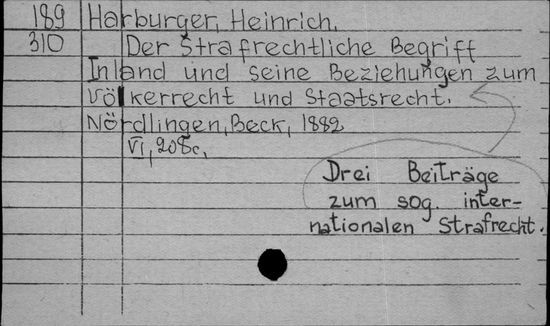 189 Harburger, Heinrich.
310 Der Strafrechtliche Begriff
Inland und seine Beziehungen zum
Völkerrecht und Staatsrecht.
Nördlingen, Beck, 1882
VI, 208c.
Drei Beiträge
zum sog. inter-
nationalen Strafrecht.